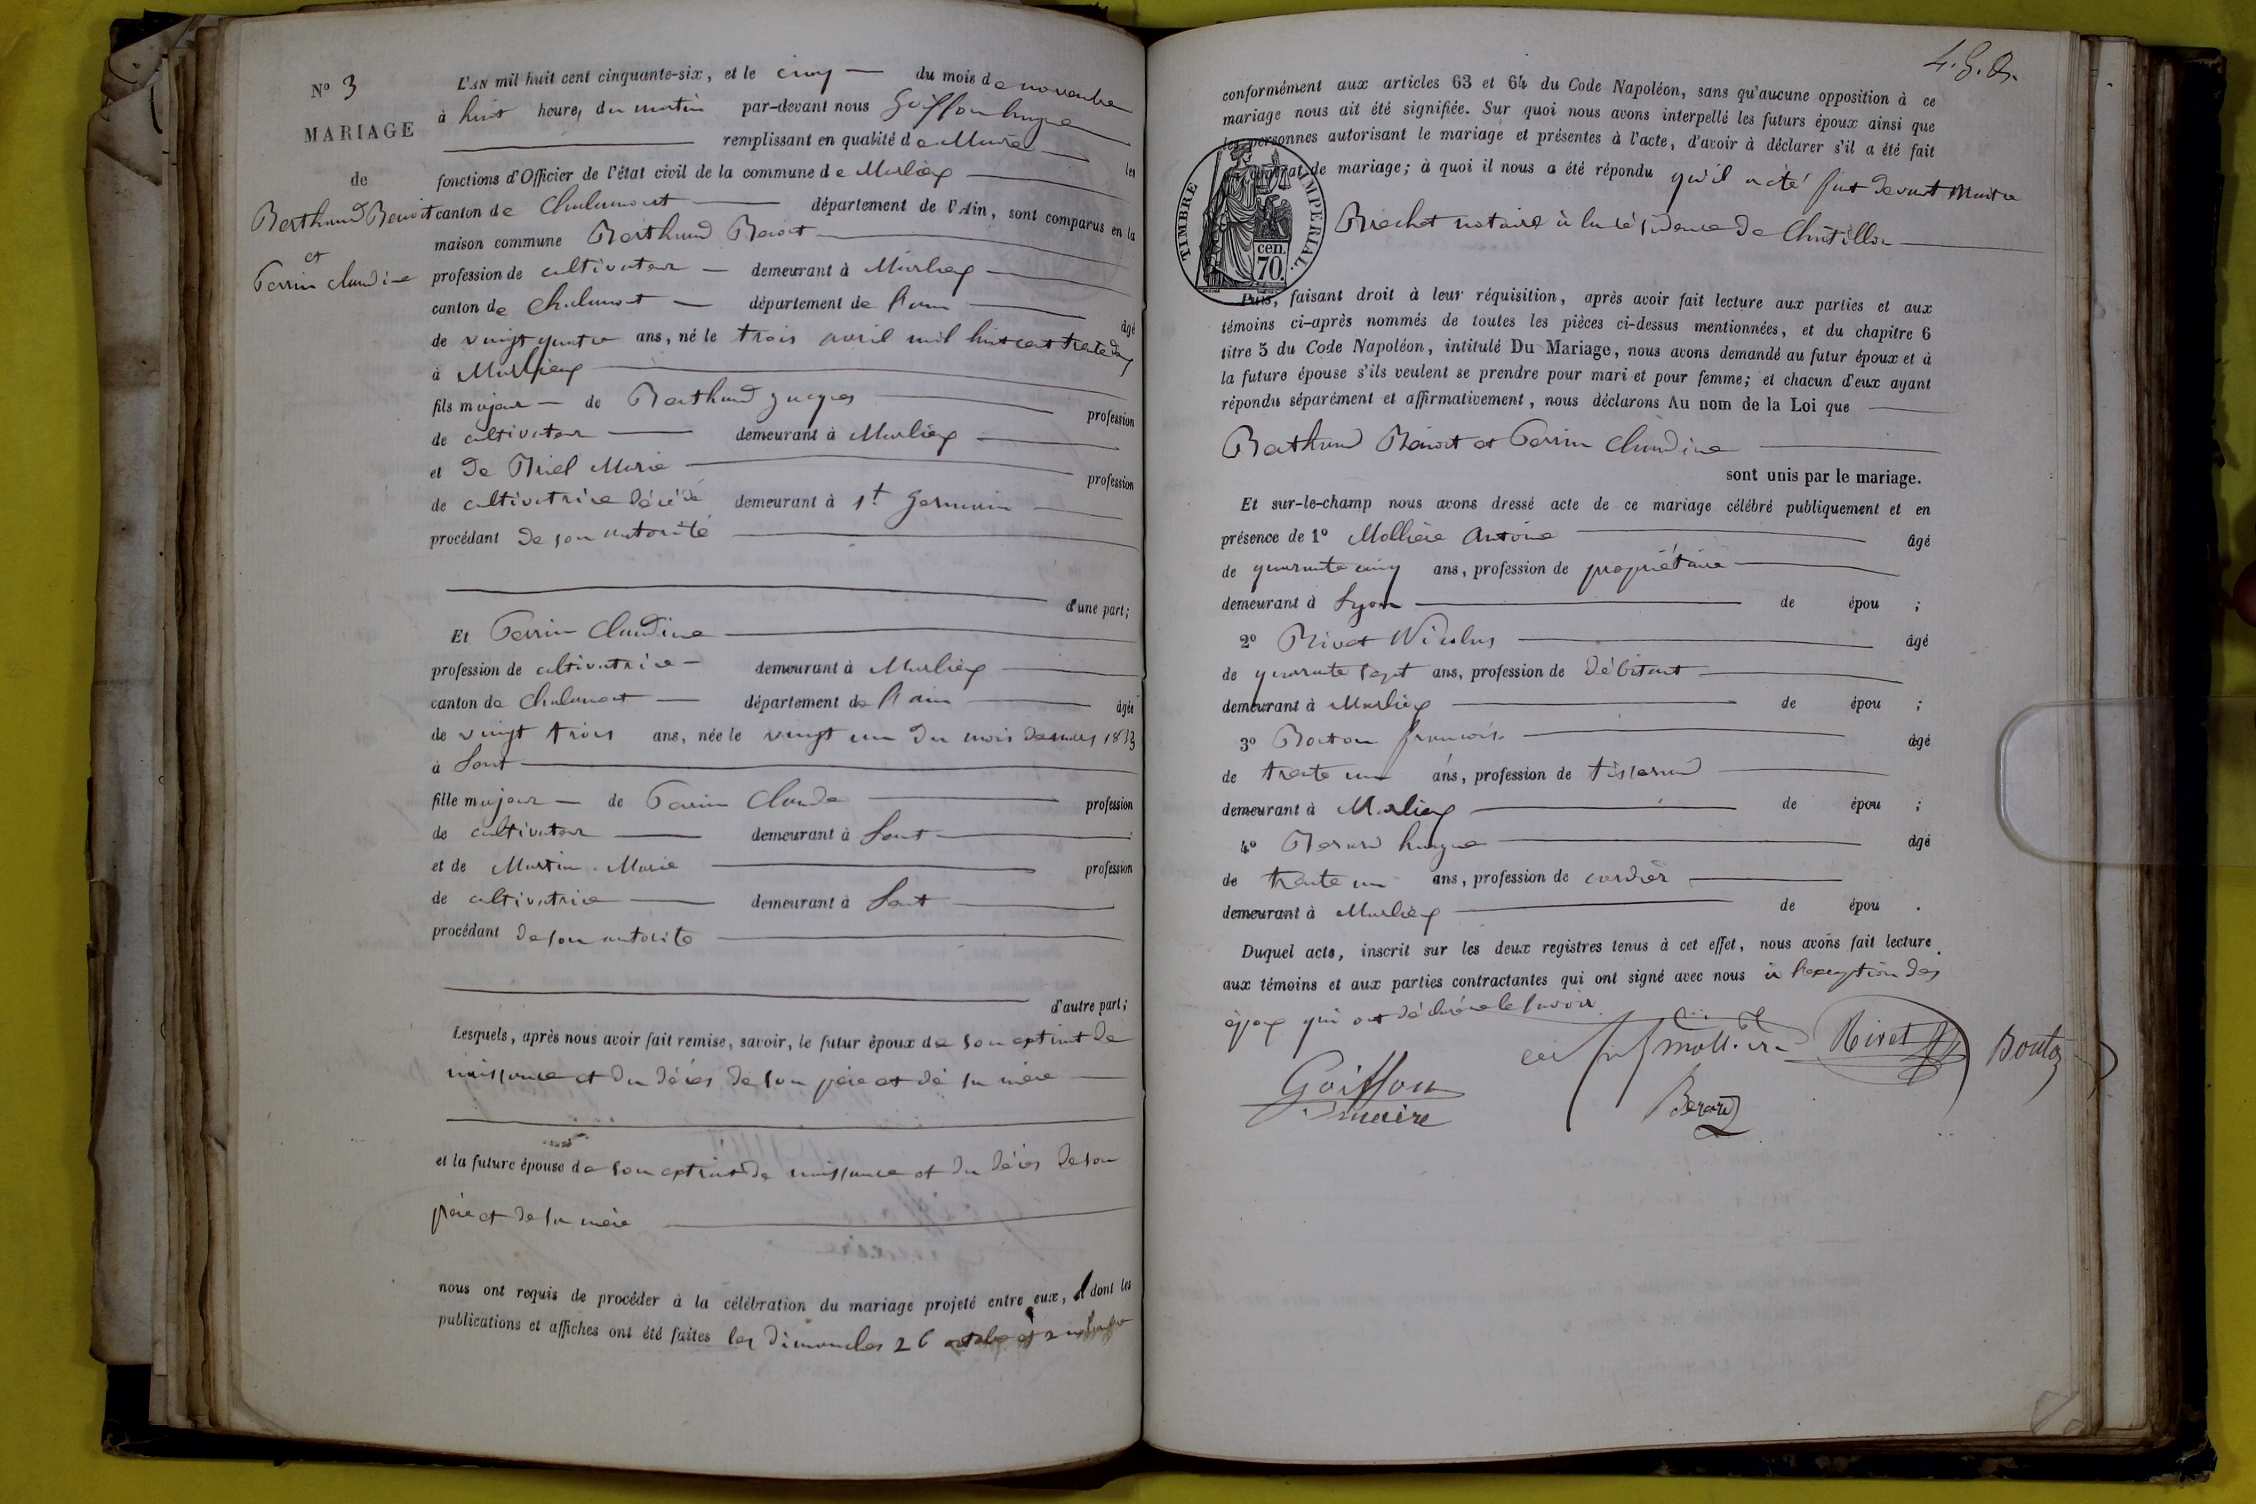 N° 3
MARIAGE
de
Berthaud Benoit
et
Perrin claudine
L'AN mil huit cent cinquante-six, et le cinq du mois de novembre
à huit heures du matin par-devant nous Goiffon hugue
remplissant en qualité de Maire les
fonctions d'Officier de l'état civil de la commune de Marlieux
canton de Chalamont département de l'Ain, sont comparus en la
maison commune Berthaud Benoit
profession de cultivateur demeurant à Marlieux
canton de Chalamont département de l'ain âgé
de vingt quatre ans, né le trois avril mil huit cent trente deux
à Marlieux
fils majeur de Berthaud Jacques profession
de cultivateur demeurant à Marlieux
et de Briel Marie profession
de cultivatrice décédé demeurant à st Germain
procédant de son autorité
d'une part;
Et Perrin Claudine
profession de cultivatrice demeurant à Marlieux
canton de Chalamont département de l'ain âgée
de vingt trois ans, née le vingt un du mois de mars 1833
à Sant
fille majeur de Perrin Claude profession
de cultivateur demeurant à Sant
et de Martin Marie profession
de cultivatrice demeurant à Sant
procédant de son autorité
d'autre part;
Lesquels, après nous avoir fait remise, savoir, le futur époux de son extrait de
naissance et du décès de son père et de sa mère
et la future épouse de son extrait de naissance et du décès de son
père et de sa mère
nous ont requis de procéder à la célébration du mariage projeté entre eux, dont les
publications et affiches ont été faites les dimanches 26 octobre et 2 novembre
4. g. Q.
conformément aux articles 63 et 64 du Code Napoléon, sans qu'aucune opposition à ce
mariage nous ait été signifiée. Sur quoi nous avons interpellé les futurs époux ainsi que
les personnes autorisant le mariage et présentes à l'acte, d'avoir à déclarer s'il a été fait
contrat de mariage; à quoi il nous a été répondu qu'il a été fait devant Maitre
Brechet notaire à la résidence de Châtillon
TIMBRE IMPERIAL.
cen.
70.
Puis, faisant droit à leur réquisition, après avoir fait lecture aux parties et aux
témoins ci-après nommés de toutes les pièces ci-dessus mentionnées, et du chapitre 6
titre 5 du Code Napoléon, intitulé Du Mariage, nous avons demandé au futur époux et à
la future épouse s'ils veulent se prendre pour mari et pour femme; et chacun d'eux ayant
répondu séparément et affirmativement, nous déclarons Au nom de la Loi que
Berthaud Benoit et Perrin Claudine
sont unis par le mariage.
Et sur-le-champ nous avons dressé acte de ce mariage célébré publiquement et en
présence de 1° Mollière Antoine âgé
de quarante cinq ans, profession de propriétaire
demeurant à Lyon de épou ;
2° Rivet Nicolas âgé
de quarante sept ans, profession de débitant
demeurant à Marlieux de épou ;
3° Bouton françois âgé
de trente un ans, profession de tisserand
demeurant à Marlieux de épou ;
4° Berard hugue âgé
de trente un ans, profession de cordier
demeurant à Marlieux de épou .
Duquel acte, inscrit sur les deux registres tenus à cet effet, nous avons fait lecture
aux témoins et aux parties contractantes qui ont signé avec nous à l'exception des
époux qui ont déclaré ne le savoir
Mollière Rivet Bouton
Goiffon
maire
Berard